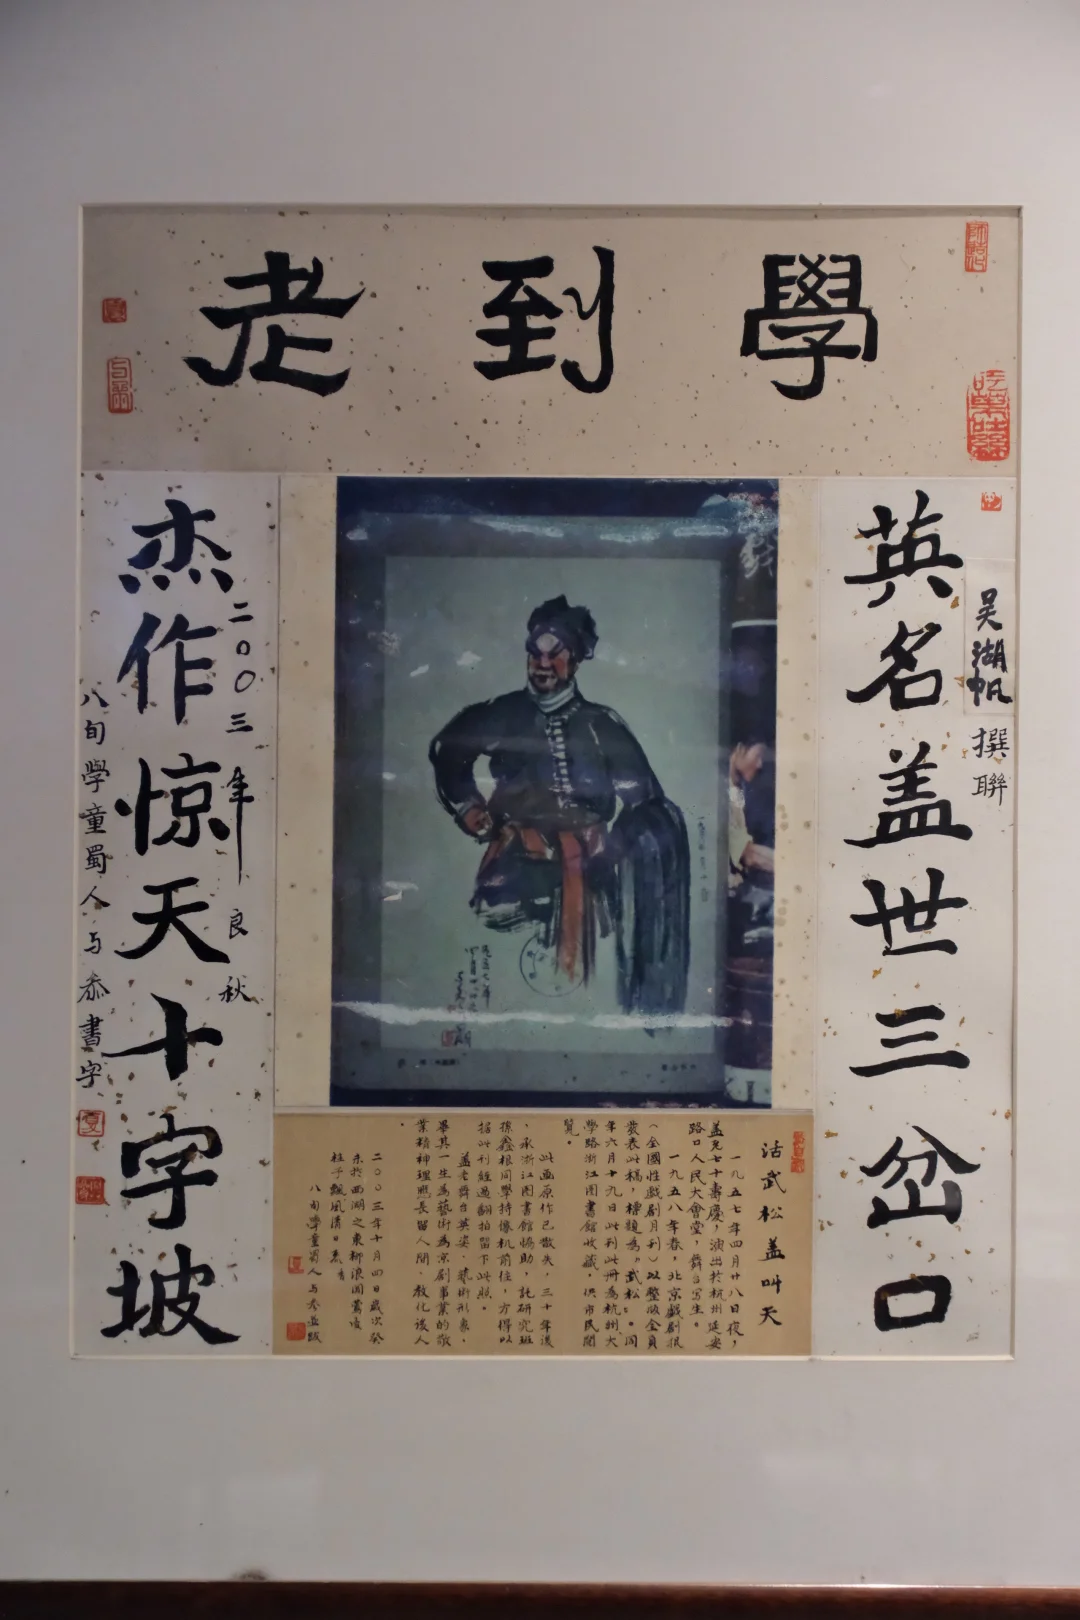 學到老
英名盖世三岔口
吴湖帆
撰聯
杰作惊天十字坡
二〇〇三年良秋
八旬學童蜀人与忝書字
活武松盖叫天
一九五七年四月廿八日夜，
盖先七十壽慶，演出於杭州延安
路口人民大會堂，舞台写生。
一九五八年春，北京戲剧报
（全國性戲剧月刊）以整版全頁
发表此稿，標題为“武松”。同
年六月十九日此刊此册为杭州大
學路浙江图書館收藏，供市民閱
覽。
此画原作已散失，三十年後
，承浙江图書館協助，託研究班
徐鑫根同學持像机前往，方得以
据此刊經過翻拍留下此照。
盖老舞台英姿、藝術形象，
畢其一生為藝術為京剧事業的敬
業精神理應長留人間，教化後人
。
二〇〇三年十月四日歲次癸
未於西湖之東柳浪闻莺时
桂子飄風清日素書
八旬學童蜀人与忝並跋